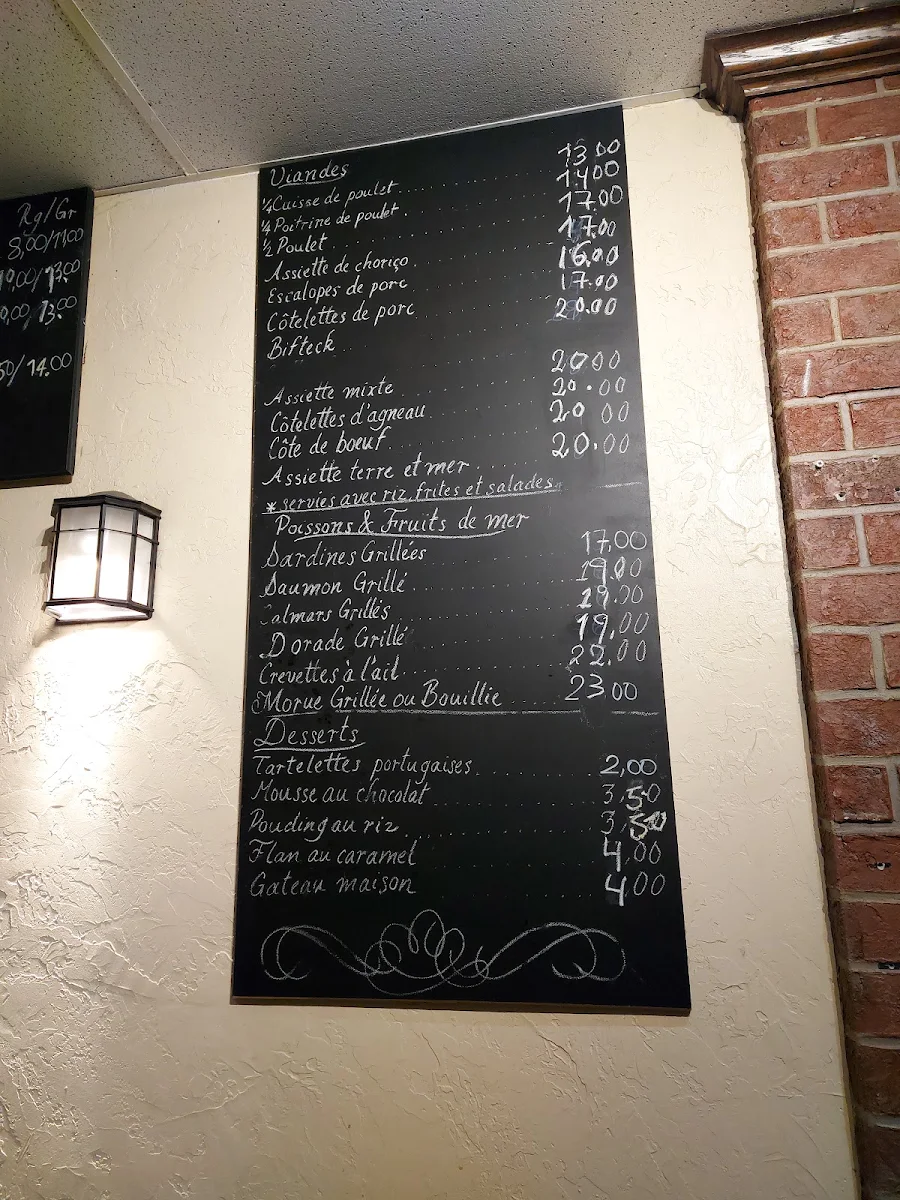 Rg/Gr
8,00/11,00
/13.00
/13.00
/14.00
Viandes
¼ Cuisse de poulet 13 00
¼ Poitrine de poulet 14 00
½ Poulet 17.00
Assiette de choriço 17.00
Escalopes de porc 16.00
Côtelettes de porc 17.00
Bifteck 20.00
Assiette mixte 20 00
Côtelettes d'agneau 20.00
Côte de bœuf 20 00
Assiette terre et mer 20.00
* servies avec riz, frites et salades
Poissons & Fruits de mer
Sardines Grillées 17,00
Saumon Grillé 19.00
Calmars Grillés 19.00
Dorade Grillé 19.00
Crevettes à l'ail 22.00
Morue Grillée ou Bouillie 23,00
Desserts
Tartelettes portugaises 2,00
Mousse au chocolat 3,50
Pouding au riz 3,50
Flan au caramel 4.00
Gateau maison 4.00